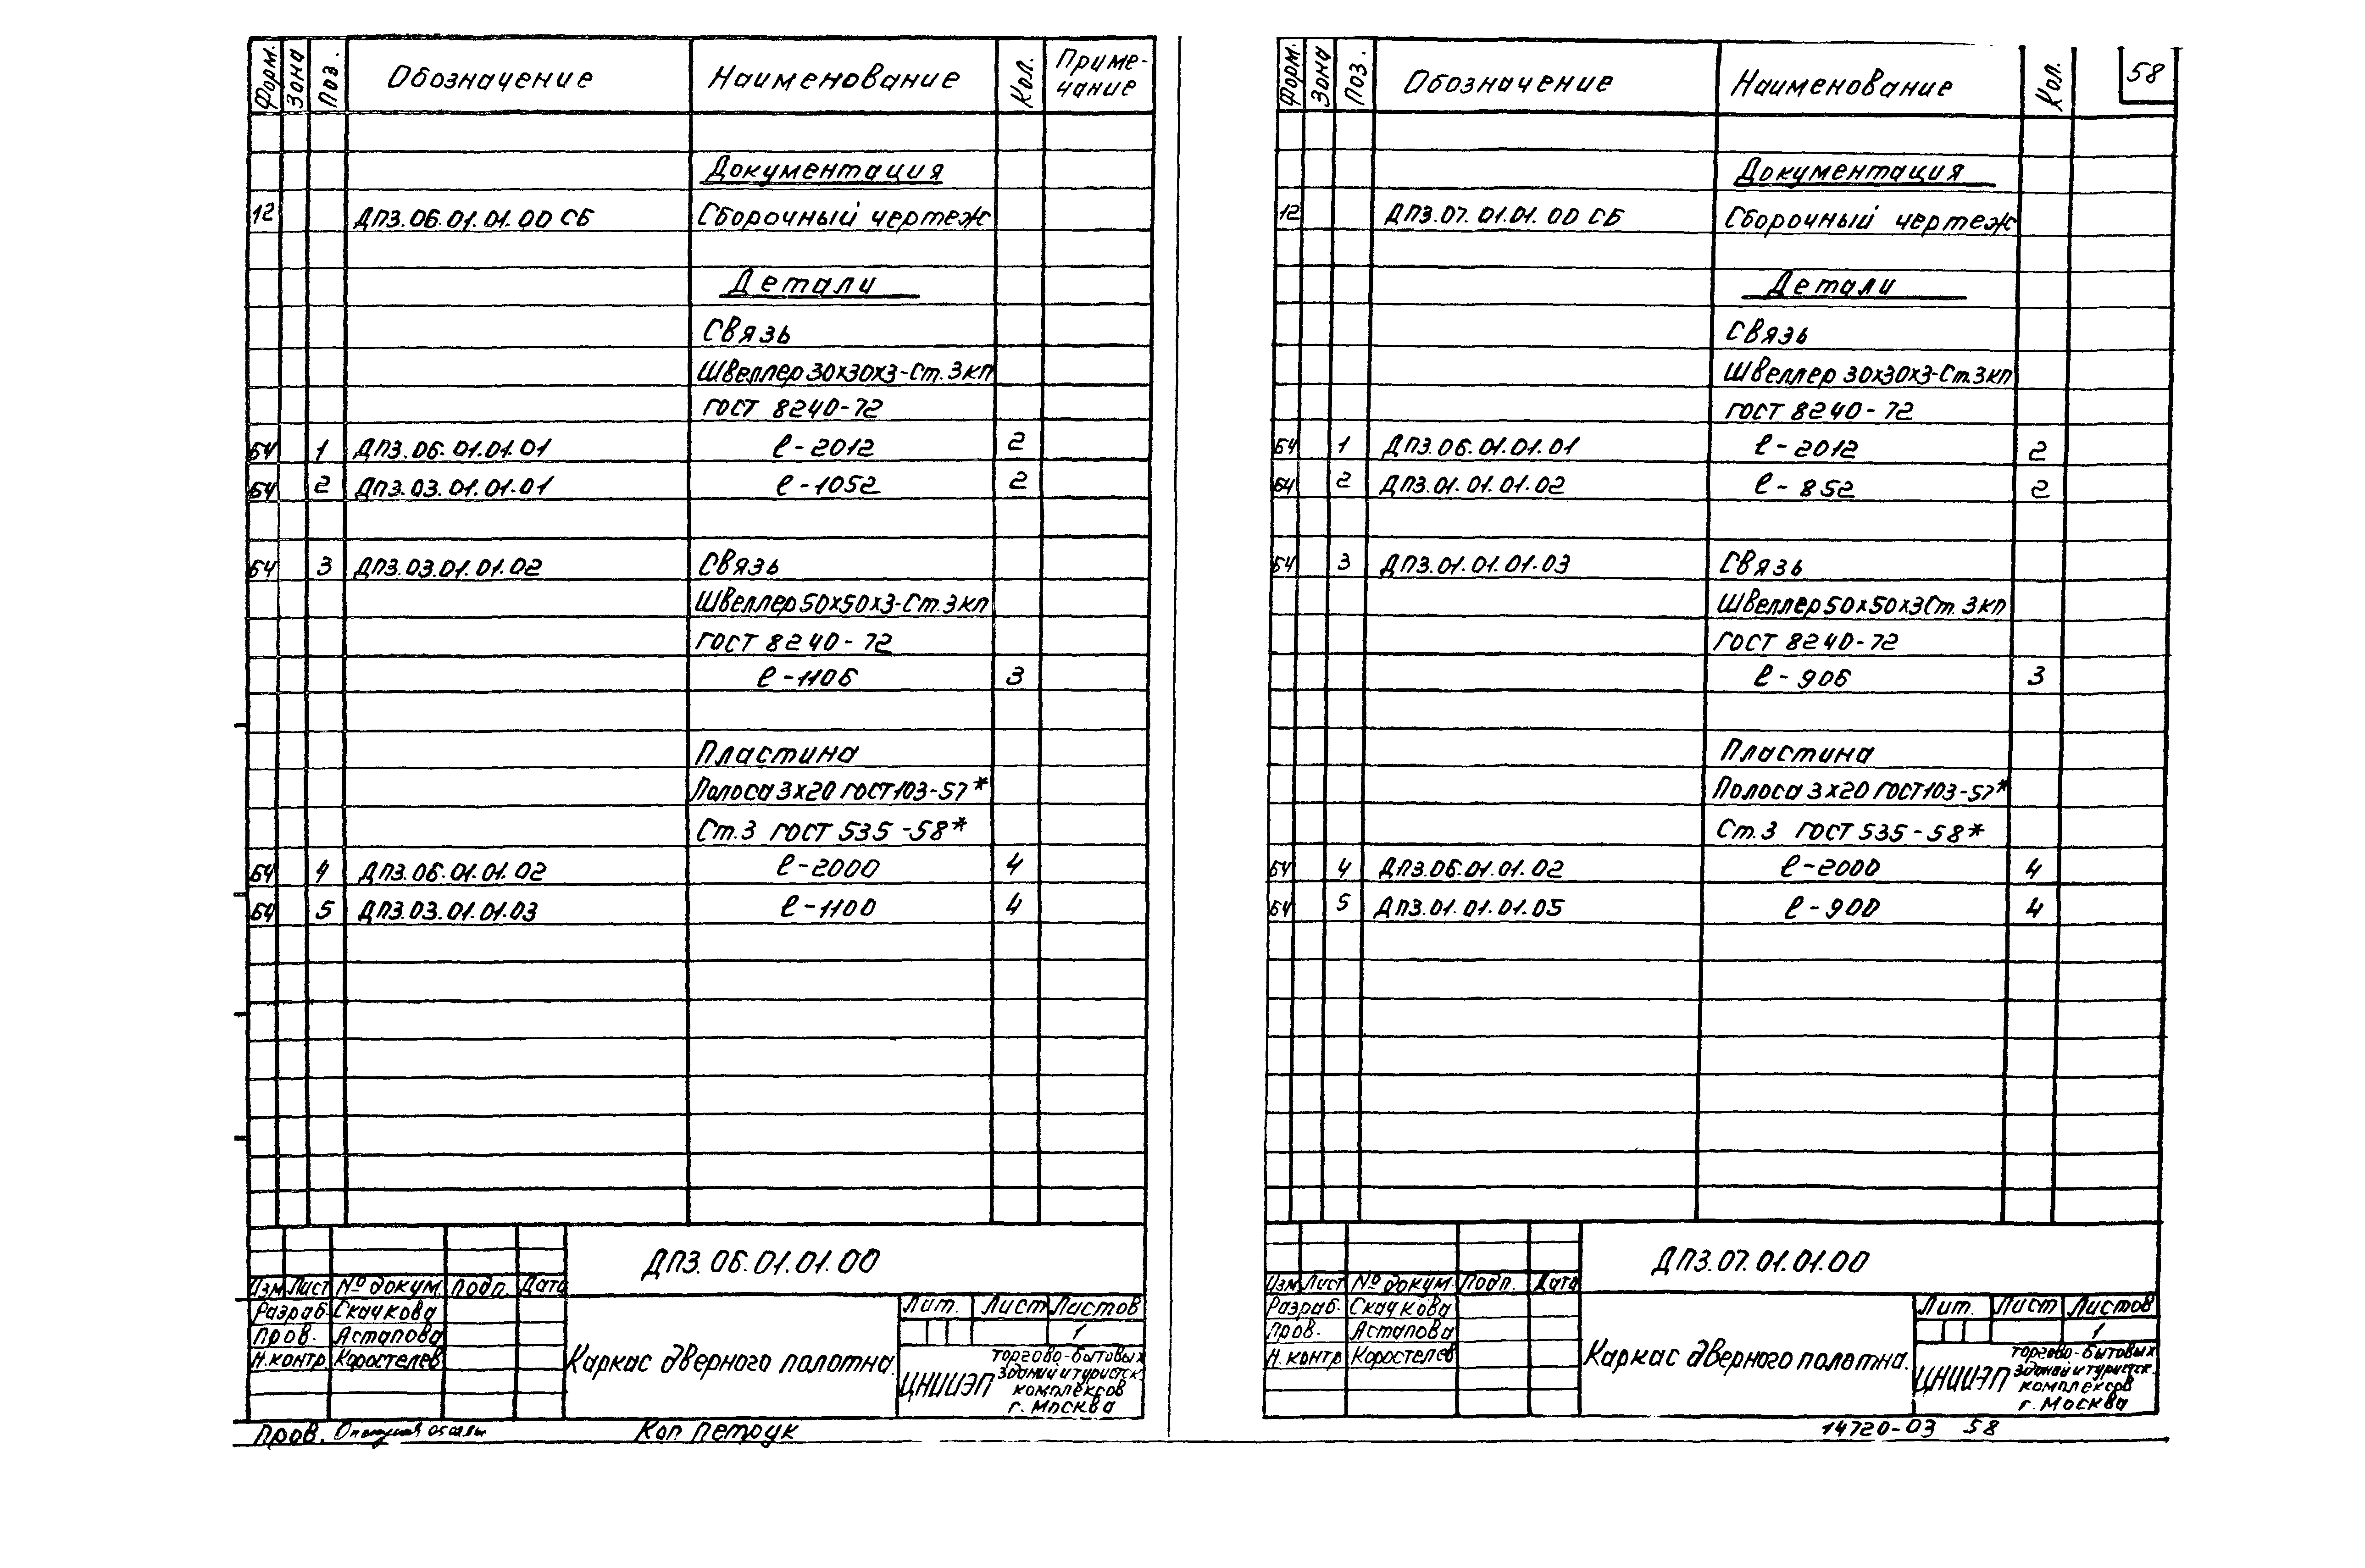 Форм. Зона Поз. Обозначение Наименование Кол. Приме-
чание
Документация
12 ДПЗ.06.01.01.00 СБ Сборочный чертеж
Детали
Связь
Швеллер 30х30х3-Ст.3кп
ГОСТ 8240-72
БЧ 1 ДПЗ.06.01.01.01 ℓ-2012 2
БЧ 2 ДПЗ.03.01.01.01 ℓ-1052 2
БЧ 3 ДПЗ.03.01.01.02 Связь
Швеллер 50х50х3-Ст.3кп
ГОСТ 8240-72
ℓ-1106 3
Пластина
Полоса 3х20 ГОСТ 103-57*
Ст.3 ГОСТ 535-58*
БЧ 4 ДПЗ.06.01.01.02 ℓ-2000 4
БЧ 5 ДПЗ.03.01.01.03 ℓ-1100 4
ДПЗ.06.01.01.00
Изм Лист № докум. Подп. Дата
Разраб. Скачкова
Пров. Астапова
Н.контр Коростелев
Каркас дверного полотна.
Лит. Лист Листов
1
ЦНИИЭП торгово-бытовых
зданий и туристск.
комплексов
г. Москва
Пров.
Коп Петрук
Форм. Зона Поз. Обозначение Наименование Кол.
58
Документация
12 ДПЗ.07.01.01.00 СБ Сборочный чертеж
Детали
Связь
Швеллер 30х30х3-Ст.3кп
ГОСТ 8240-72
БЧ 1 ДПЗ.06.01.01.01 ℓ-2012 2
БЧ 2 ДПЗ.01.01.01.02 ℓ-852 2
БЧ 3 ДПЗ.01.01.01.03 Связь
Швеллер 50х50х3Ст.3кп
ГОСТ 8240-72
ℓ-906 3
Пластина
Полоса 3х20 ГОСТ 103-57*
Ст.3 ГОСТ 535-58*
БЧ 4 ДПЗ.06.01.01.02 ℓ-2000 4
БЧ 5 ДПЗ.01.01.01.05 ℓ-900 4
ДПЗ.07.01.01.00
Изм Лист № докум. Подп. Дата
Разраб. Скачкова
Пров. Астапова
Н.контр Коростелев
Каркас дверного полотна.
Лит. Лист Листов
1
ЦНИИЭП торгово-бытовых
зданий и туристск.
комплексов
г. Москва
14720-03 58